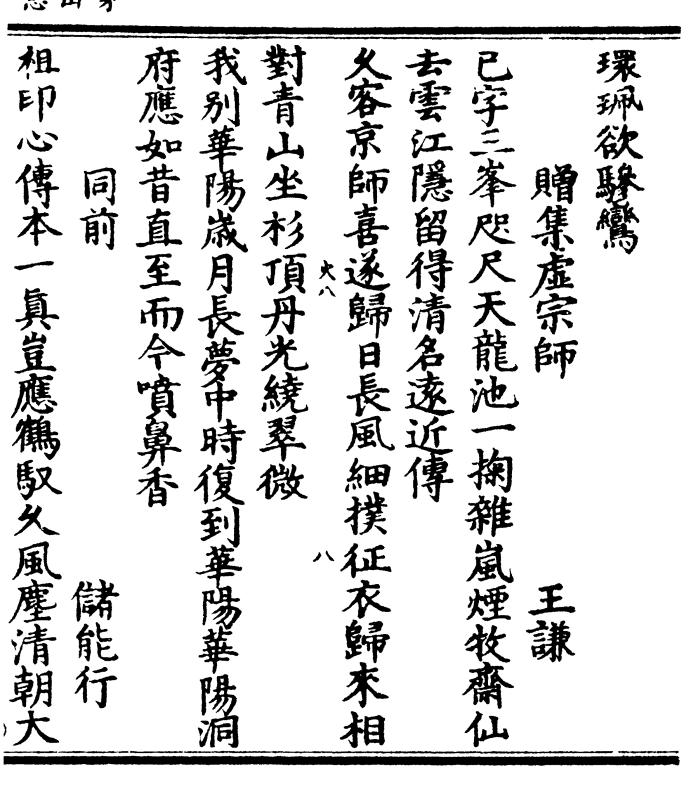 環珮欲驂鸞
贈集虛宗師 王謙
已字三峯咫尺天龍池一掬雜嵐煙牧齋仙
去雲江隱留得清名遠近傳
久客京師喜遂歸日長風細撲征衣歸來相
六八
八
對青山坐杉頂丹光繞翠微
我別華陽歲月長夢中時復到華陽華陽洞
府應如昔直至而今噴鼻香
同前 儲能行
祖印心傳本一眞豈應鶴馭久風塵清朝大